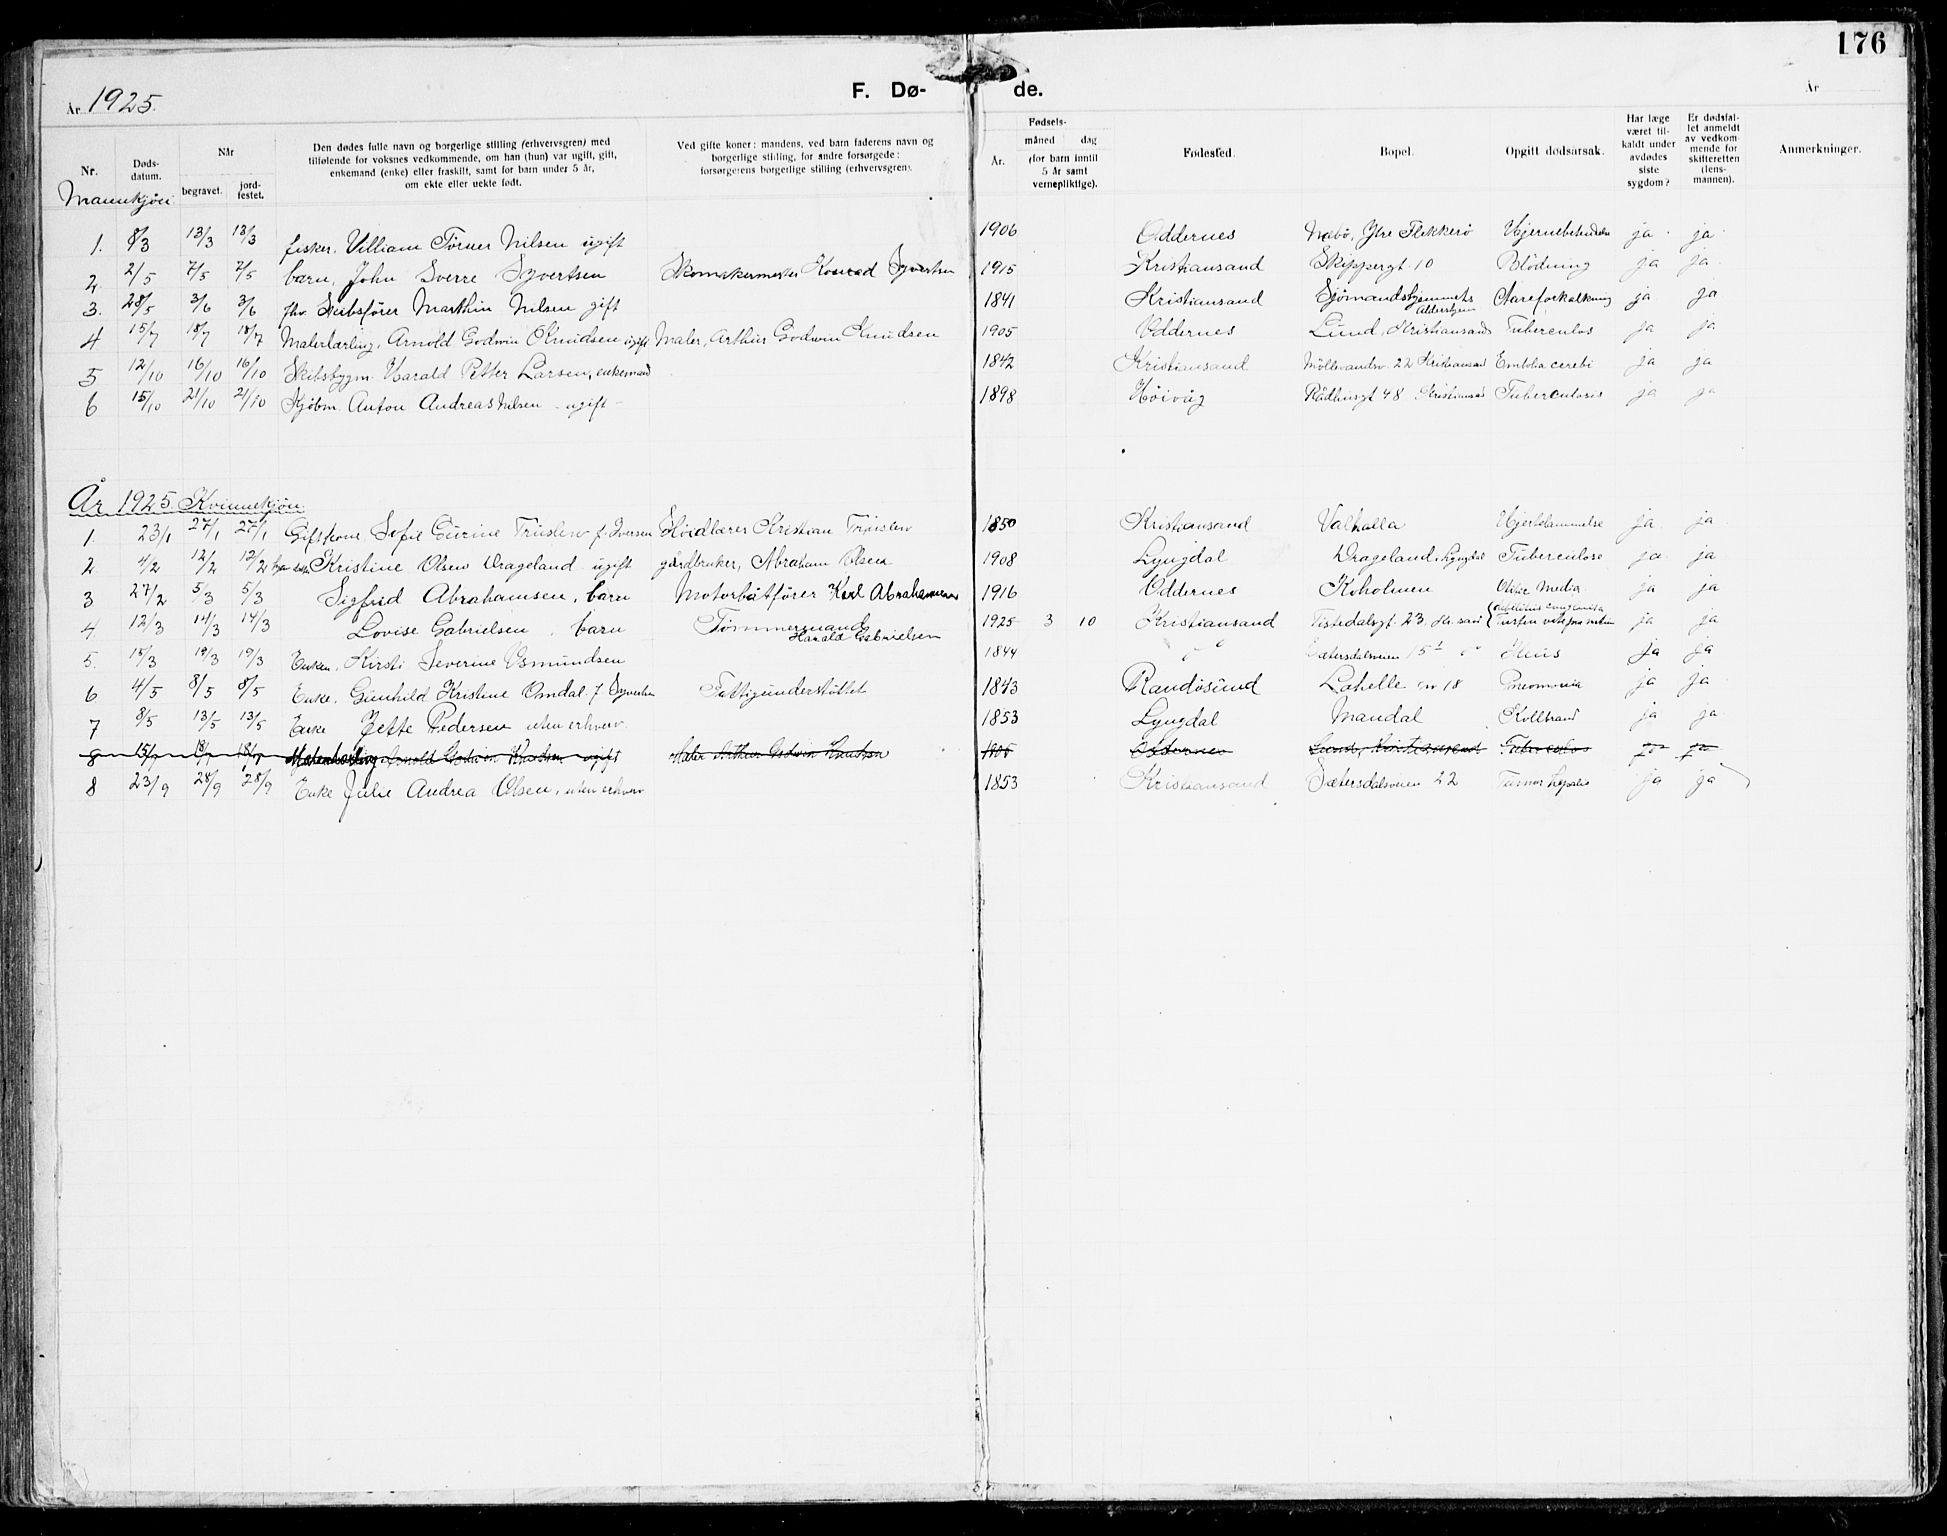 176
År 1925. F. Dø- de. År
Nr. Døds-datum. Når begravet. jord-festet. Den dødes fulle navn og borgerlige stilling (erhvervsgren) med tilføiende for voksnes vedkommende, om han (hun) var ugift, gift, enkemand (enke) eller fraskilt, samt for barn under 5 år, om ekte eller uekte født. Ved gifte koner: mandens, ved barn faderens navn og borgerlige stilling, for andre forsørgede: forsørgerens borgerlige stilling (erhvervsgren). Fødsels- År. måned dag (for barn inntil 5 år samt vernepliktige). Fødested. Bopel. Opgitt dødsårsak. Har læge været til-kaldt under avdødes siste sygdom? Er dødsfal-let anmeldt av vedkom mende for skifteretten (lens-mannen). Anmerkninger.
Mannkjøn
1. 8/3 13/3 13/3 fisker. Villiam Tørner Nilsen ugift 1906 Oddernes Ytre Flekkerø ja ja
2 2/5 7/5 7/5 barn, John Sverre Syvertsen Skomakermester Konrad Syvertsen 1915 Kristiansand Skippergt. 10 Blødning ja ja
3. 28/5 3/6 3/6 fhv. Skibsfører Marthin Nilsen gift 1841 Kristiansand Sjømandshjemmets Aldershjem Aareforkalkning ja ja
4 15/7 18/7 18/7 Malerlærling, Arnold Godwin Knudsen ugift Maler, Arthur Godwin Knudsen 1905 Oddernes Lund, Kristiansand Tuberculos ja ja
5 12/10 16/10 16/10 Skibsbygm. Harald Petter Larsen, enkemand 1842 Kristiansand Møllevandsv. 22 Kristiansand Embolia cerebi ja ja
6 15/10 21/10 21/10 Kjøbm. Anton Andreas Nilsen - ugift - 1898 Høivåg Rådhusgt 48 Kristiansand Tuberculosis ja ja
År 1925. Kvinnekjøn.
1. 23/1 27/1 27/1 Gift kone, Sofie Gurine Truslew f. Iversen Kristian Truslew 1850 Kristiansand Valhalla Hjertelammelse ja ja
2 4/2 12/2 12/2 Kristine Olsen Drageland ugift gårdbruker, Abraham Olsen 1908 Lyngdal Drageland, Lyngdal Tuberculose ja ja
3 27/2 5/3 5/3 Sigfrid Abrahamsen, barn Motorbåtfører Karl Abrahamsen 1916 Oddernes Koholmen Otitis Media ja ja
4 12/3 14/3 14/3 Lovise Gabrielsen, barn Tømmermand Harald Gabrielsen 1925 3 10 Kristiansand Tistedalsgt. 23, Kr.sand ja ja
5. 15/3 19/3 19/3 Enken, Kirsti Severine Osmundsen 1844 " Sætersdalsveien 15 Ileus ja ja
6 4/5 8/5 8/5 Enke. Gunhild Kristine Omdal f. Syvertsen Fattigunderstøttet 1843 Randøsund Lahelle nr 18 Pneomonia ja ja
7 8/5 13/5 13/5 Enke Jette Pedersen uten erhverv. 1853 Lyngdal Mandal Kolbrand ja ja
8 15/7 18/7 18/7 Malerlærling Arnold Godwin Knudsen ugift Maler Arthur Godwin Knudsen 1905 Oddernes Lund, Kristiansand Tuberculos ja ja
8 23/9 28/9 28/9 Enke Julie Andrea Olsen, uten erhverv 1853 Kristiansand Sætersdalsveien 22 Tumor hepatis ja ja